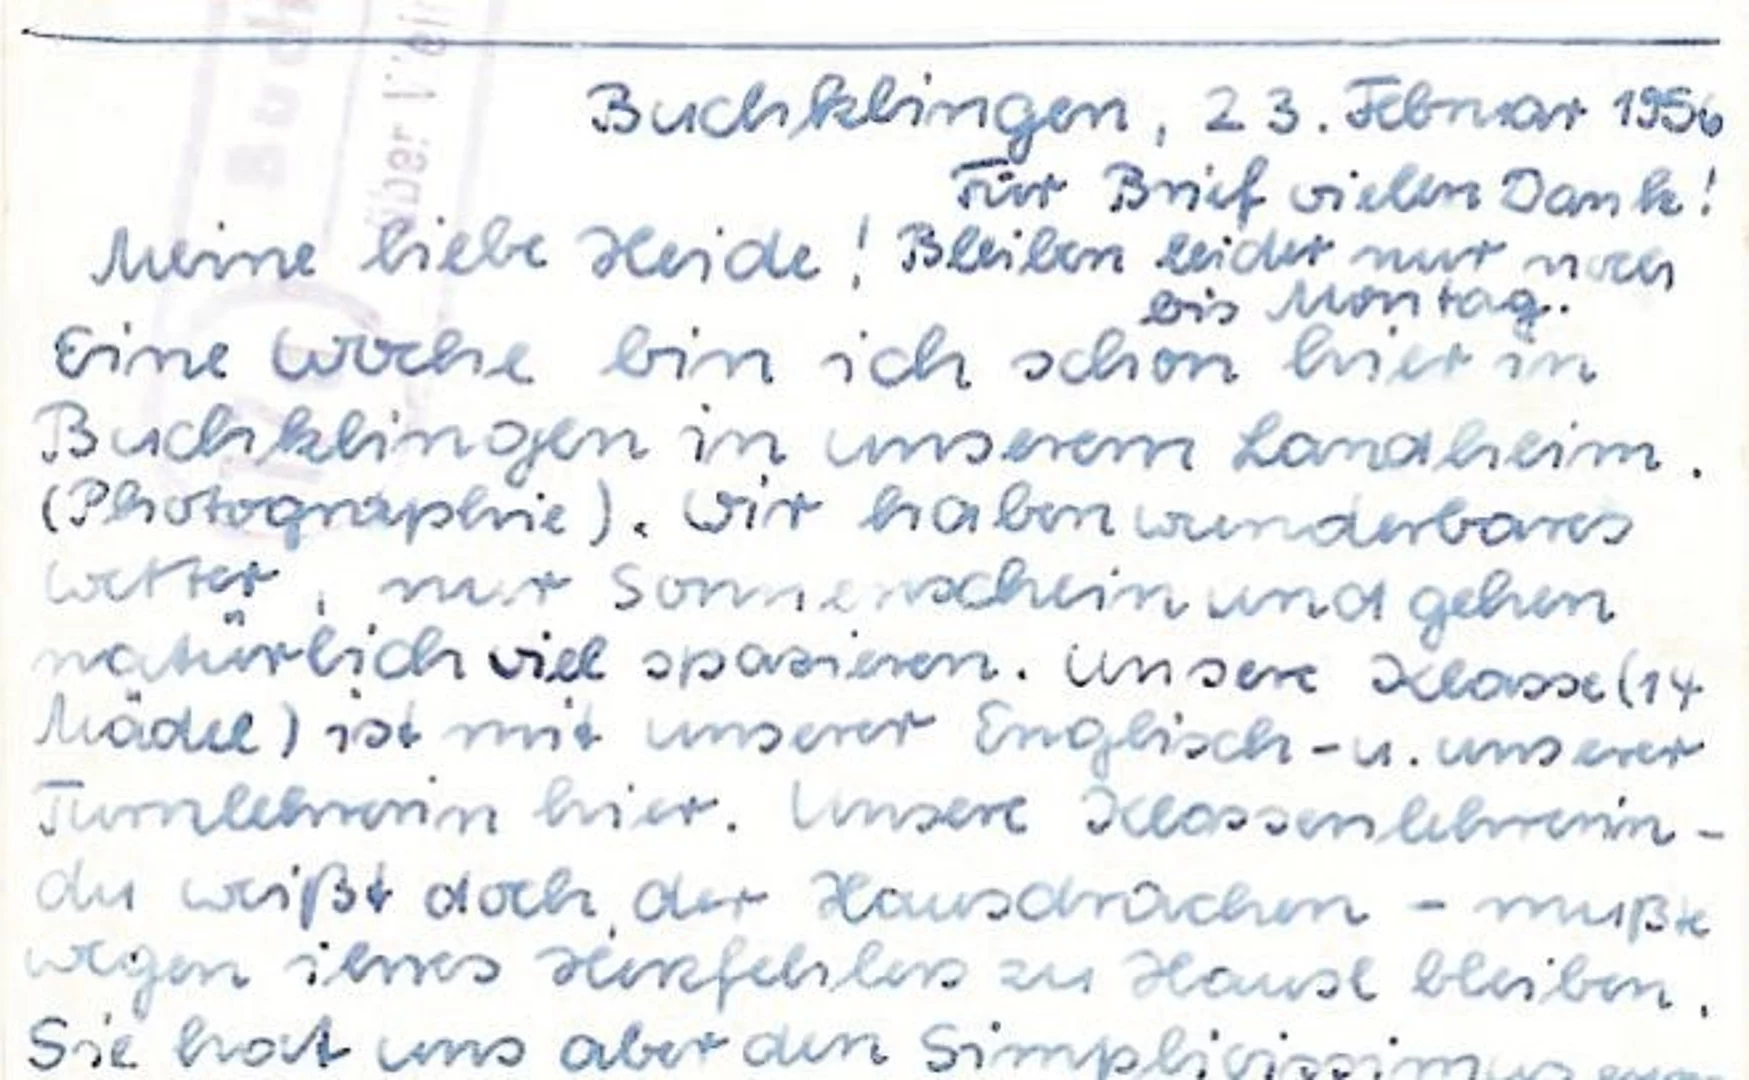 Buchklingen, 23. Februar 1956
Für Brief vielen Dank!
Meine liebe Heide! Bleiben leider nur noch
bis Montag.
Eine Woche bin ich schon hier in
Buchklingen in unserem Landheim.
(Photographie). Wir haben wunderbares
Wetter, nur Sonnenschein und gehen
natürlich viel spazieren. Unsere Klasse (14
Mädel) ist mit unserer Englisch- u. unserer
Turnlehrerin hier. Unsere Klassenlehrerin -
du weißt doch, der Hausdrachen - mußte
wegen ihres Herzfehlers zu Hause bleiben.
Sie hat uns aber den Simplicissimus
über